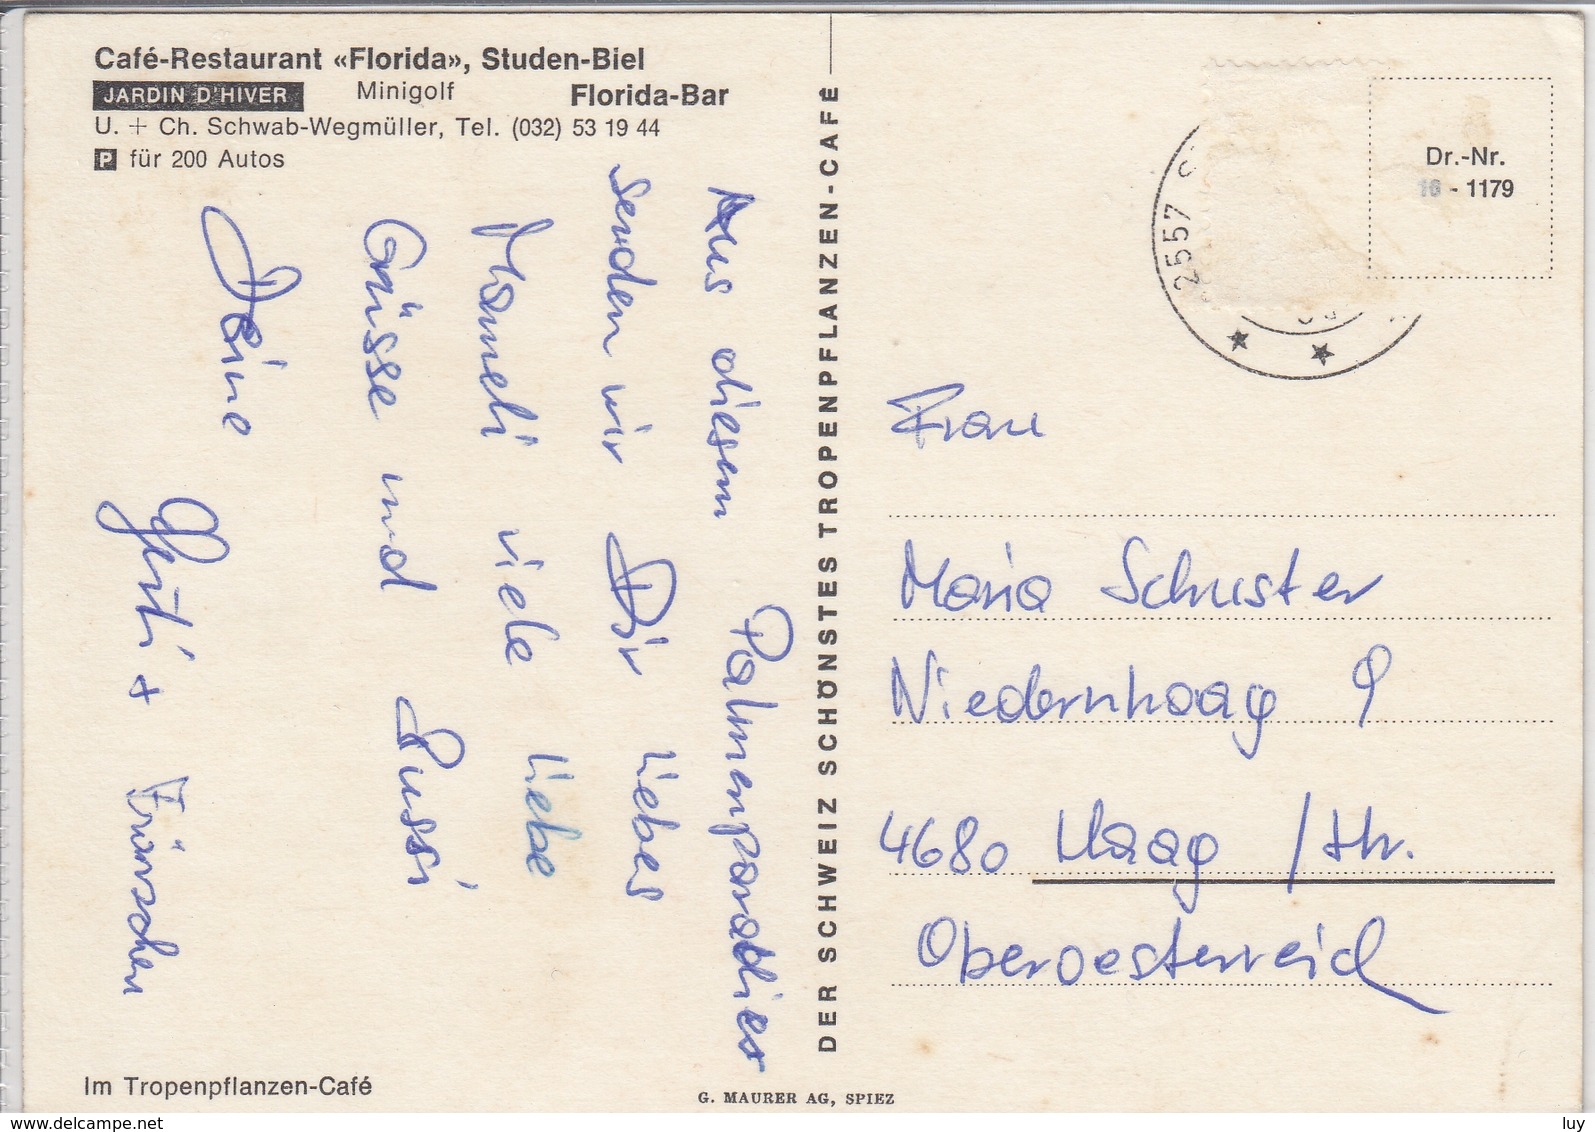 Café-Restaurant «Florida», Studen-Biel
JARDIN D'HIVER Minigolf Florida-Bar
U. + Ch. Schwab-Wegmüller, Tel. (032) 53 19 44
P für 200 Autos
Aus diesem Palmenparadies
senden wir Dir liebes
Mameli viele liebe
Grüsse und Bussi
Deine
Gerti + Fränschen
Im Tropenpflanzen-Café
DER SCHWEIZ SCHÖNSTES TROPENPFLANZEN-CAFÉ
G. MAURER AG, SPIEZ
2557
Dr.-Nr.
16 - 1179
Frau
Maria Schuster
Niedernhaag 9
4680 Haag / Hr.
Oberoesterreich
www.delcampe.net
luy